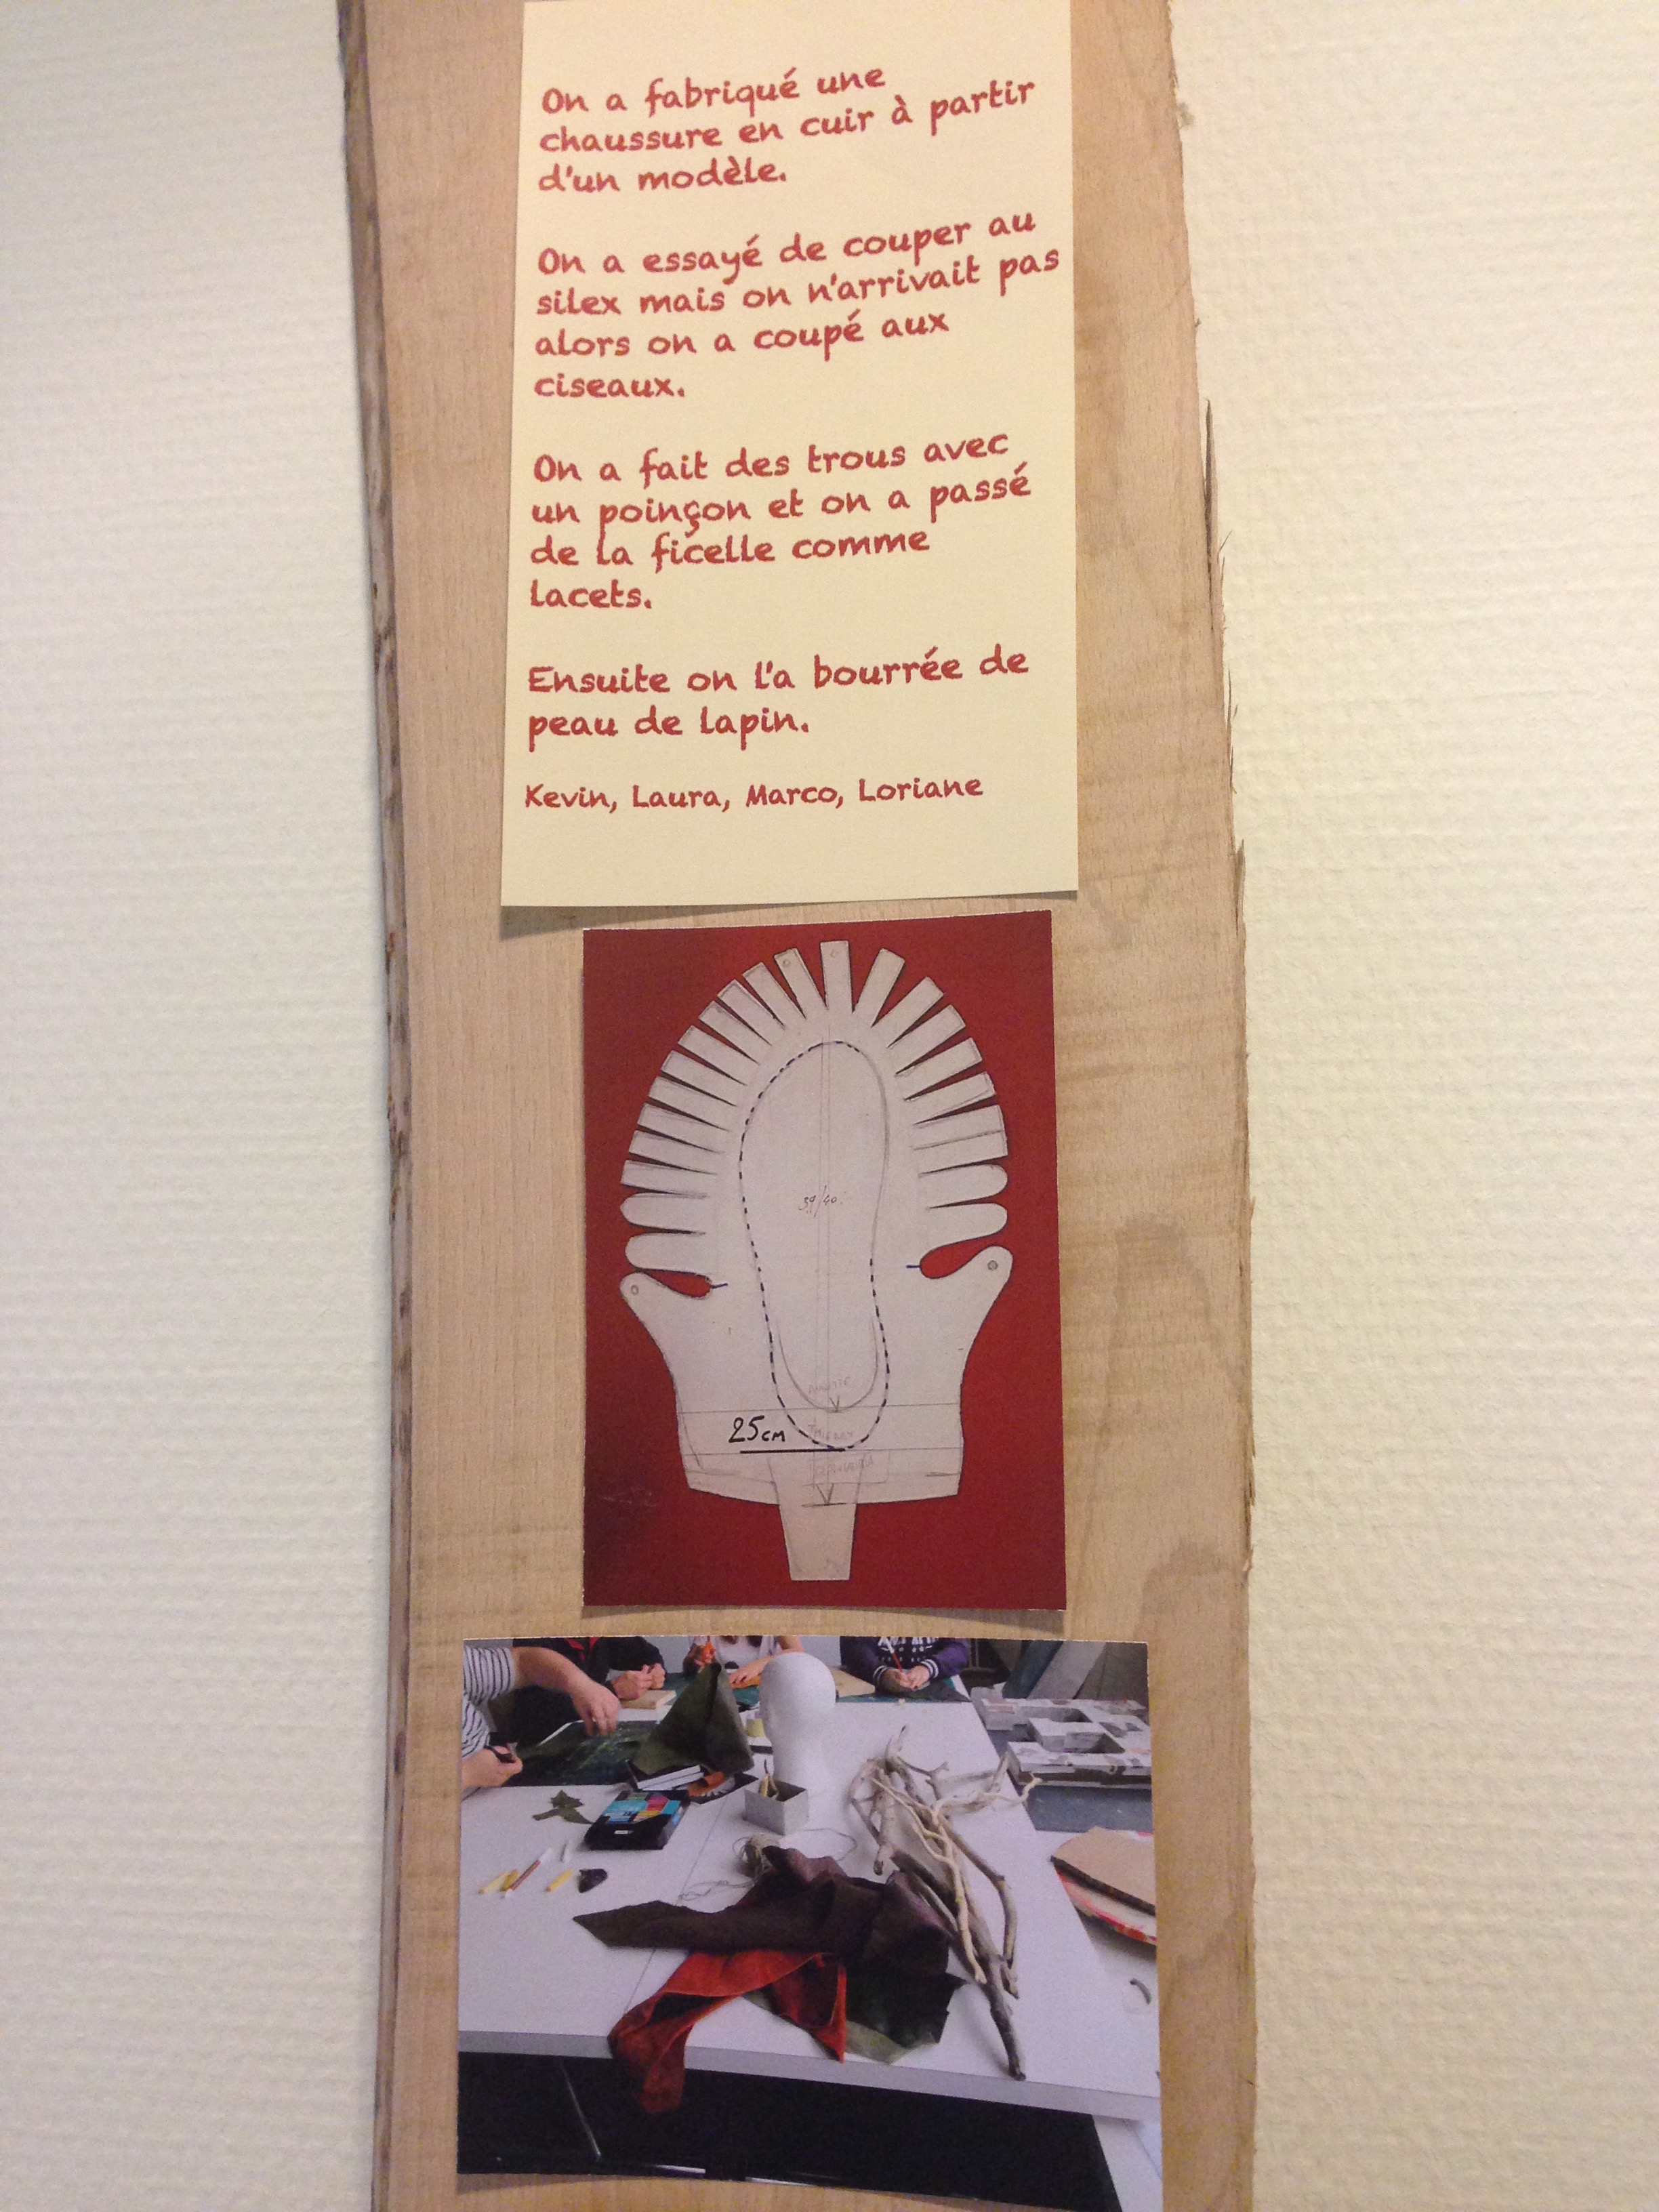 On a fabriqué une
chaussure en cuir à partir
d'un modèle.
On a essayé de couper au
silex mais on n'arrivait pas
alors on a coupé aux
ciseaux.
On a fait des trous avec
un poinçon et on a passé
de la ficelle comme
lacets.
Ensuite on l'a bourrée de
peau de lapin.
Kevin, Laura, Marco, Loriane
39/40
25cm